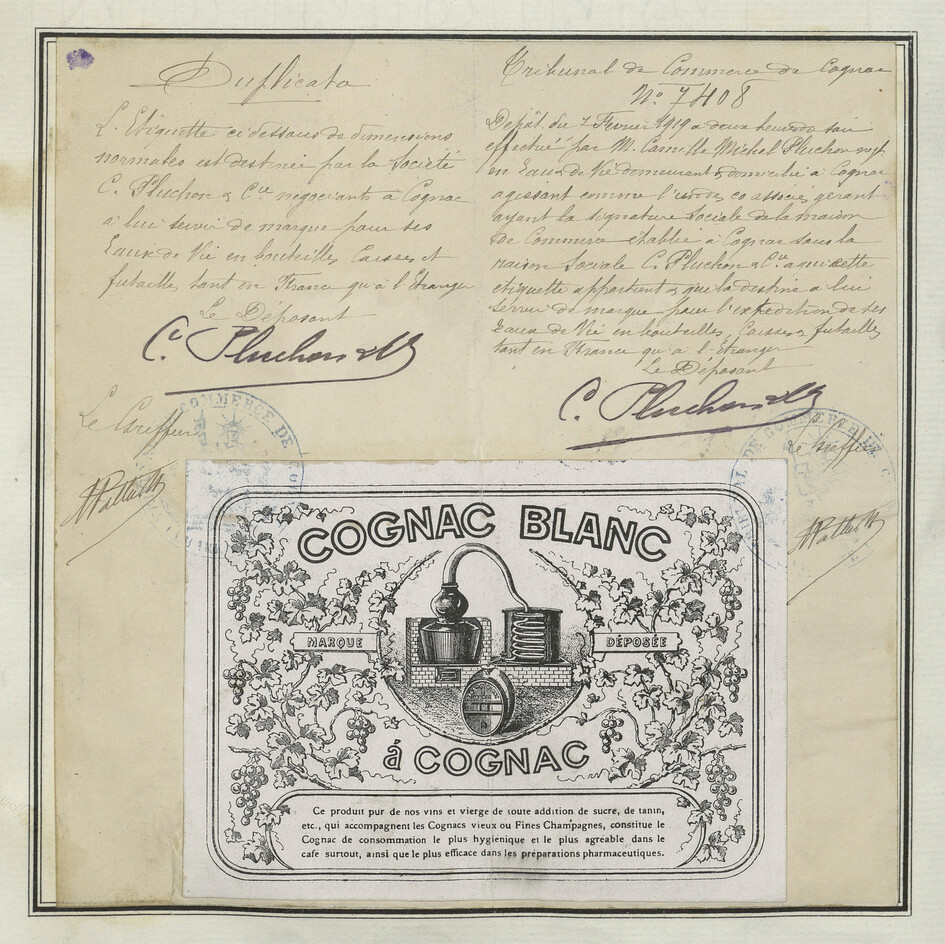 Duplicata
L'Etiquette ci dessous de dimensions
normales est destinée par la Société
C. Pluchon & Cie negociants à Cognac
à lui servir de marque pour ses
Eaux de Vie en bouteilles Caisses et
futailles tant en France qu'à l'Etranger
Le Déposant
C. Pluchon & Cie
Le Greffier
Tribunal de Commerce de Cognac
No 7408
Depôt du 7 Fevrier 1919 a deux heures du soir
effectué par M. Camille Michel Pluchon negt
en Eaux de Vie demeurant & domicilié à Cognac
agissant comme l'un des co associés gérant
ayant la signature Sociale de la maison
de Commerce établie à Cognac sous la
raison Sociale C. Pluchon & Cie a qui cette
etiquette appartient & qui la destine a lui
servir de marque pour l'expédition de ses
Eaux de Vie en bouteilles, Caisses & futailles
tant en France qu'à l'Etranger
Le Déposant
C. Pluchon & Cie
Le Greffier
COMMERCE DE
DE COMMERCE DE
COGNAC BLANC
MARQUE DÉPOSÉE
á COGNAC
Ce produit pur de nos vins et vierge de toute addition de sucre, de tanin,
etc., qui accompagnent les Cognacs vieux ou Fines Champagnes, constitue le
Cognac de consommation le plus hygiénique et le plus agréable dans le
café surtout, ainsi que le plus efficace dans les préparations pharmaceutiques.